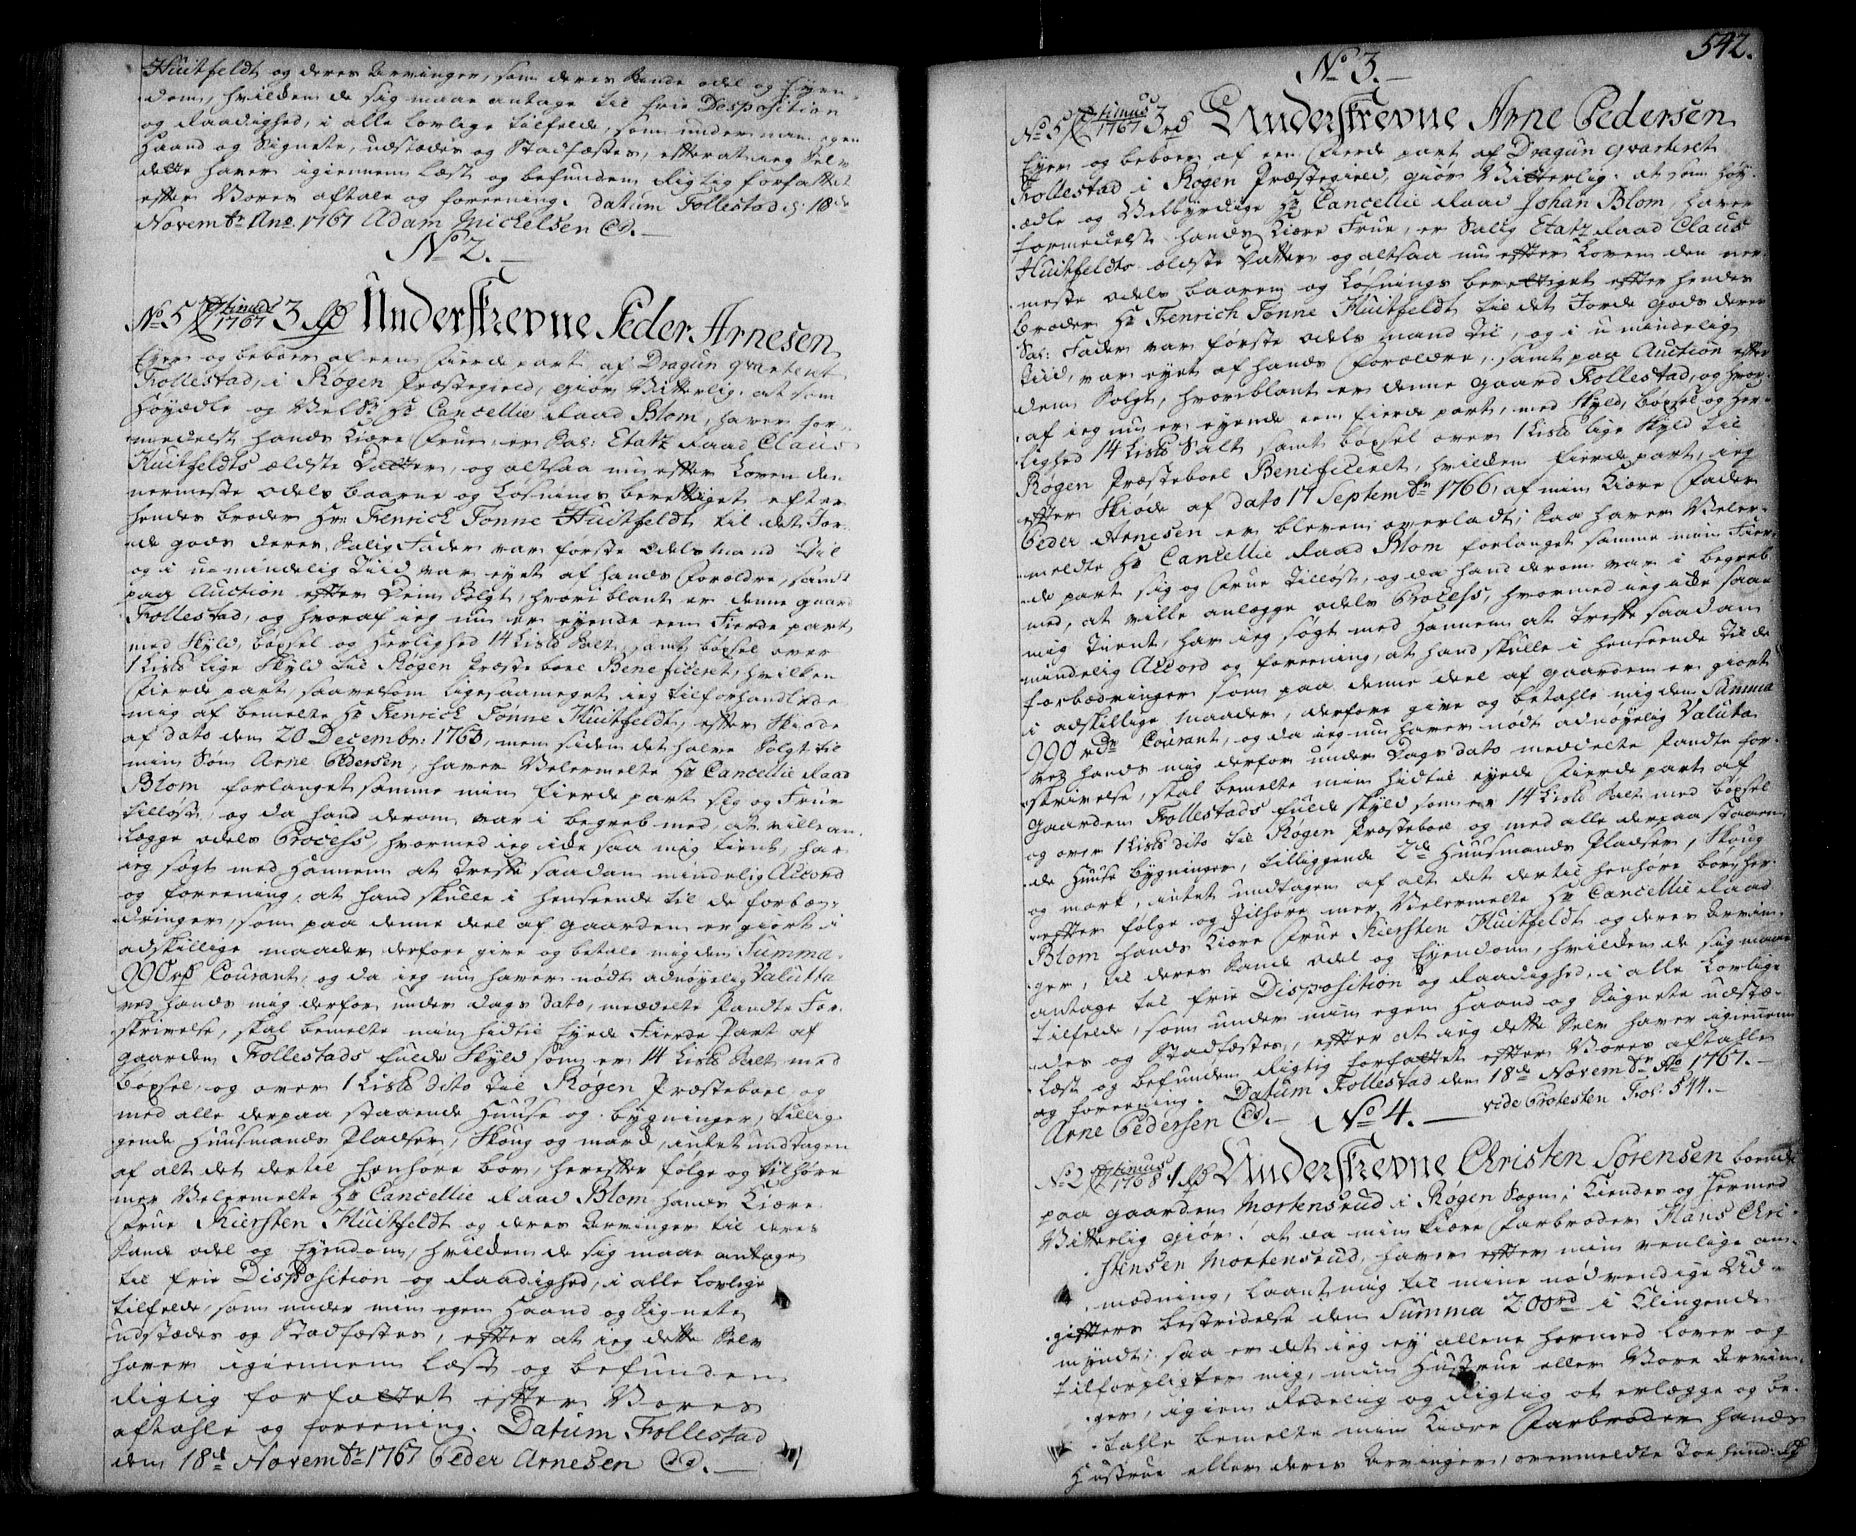 Huitfeldt og deres Arvinger, som deres Sande odel og Eyen-
dom, hvilken de sig maae antage til frie Desposition
og Raadighed, i alle lovlige tilfælde, som under min egen
Haand og Signete, udstædes og Stadfæstes, efter at ieg Selv
dette haver igiennem læst og befunden Rigtig forfattet
efter Vores aftale og foreening. Datum Follestad d: 18de
Novembr Ano 1767 Adam Michelsen
No 2.
No 5 1767 3 Underskrevne Peder Arnesen
Eyer og beboer af een Fierde part af Dragun qvarteret
Follestad, i Røgen Præstegield, giør Vitterlig, at som
Høyædle og Velb: Hr Cancellie Raad Blom, haver for-
medelst hands Kiære Frue, er Sal: Etatz Raad Claus
Huitfeldts ældste Datter, og altsaa nu efter Loven den
nermeste odels baarne og Løsnings berettiget efter
hendes broder Hr: Henrich Tonne Huitfeldt til det Jor-
de gods deres Salig Fader var første odels mand til
og i u-mindelig Tiid var eyet af hands Forældre, samt
paa Auction efter dem Solgt, hvori blant er denne gaard
Follestad, og hvoraf ieg nu er eyende een Fierde part
med Skyld, bøxsel og herlighed 14 Lispd Salt, samt bøxsel over
1 Lispd lige Skyld til Røgen Præste boel Beneficeret, hvilken
Fierde part saavelsom ligesaameget ieg tilforhandlede
mig af bemelte Hr Henrich Tønne Huitfeldt, efter Skiøde
af dato den 20 Decembr: 1763, men siden det halve Solgt til
min Søn Arne Pedersen, haver Velermelte Hr Cancellie Raad
Blom forlanget samme min Fierde part sig og Frue
tilløst, og da hand derom var i begreb med, at ville an-
lægge odels Process, hvormed ieg icke saa mig tient, har
ieg søgt med Hannem at træffe saadan mindelig Accord
og foreening, at hand skulle i henseende til de forbæ-
dringer, som paa denne deel af gaarden er giort i
adskillige maader derfore give og betale mig den Summa
990 rd Courant, og da ieg nu haver nødt adnøyelig Valutta
ved hands mig derfor under dags dato, meddelte Pandte For-
skrivelse, skal bemelte min hidtil Eyede Fierde Part af
gaarden Follestads fulde Skyld som er 14 Lispd Salt med
bøxsel, og over 1 Lispd dito til Røgen Præsteboel og
med alle derpaa staaende Huuse og bygninger, tillig-
gende Huusmands Pladser, Skoug og mark, intet undtagen
af alt det dertil henhøre bør, herefter følge og tilhøre
mer Velermelte Hr Cancellie Raad Blom hands Kiære
Frue Kiersten Huitfeldt og deres Arvinger til deres
Sande odel og Eyendom, hvilken de sig maae antage
til frie Disposition og Raadighed, i alle lovlige
tilfælde, som under min egen Haand og Signete
udstædes og Stadfæstes, efter at ieg dette Selv
haver igiennem læst og befunden
Rigtig forfattet efter Vores
aftahle og foreening. Datum Follestad
den 18de Novembr 1767 Peder Arnesen
542.
No 3.
No 5 1767 3 Underskrevne Arne Pedersen
Eyer og beboer af een Fierde part af Dragun qvarteret
Follestad i Røgen Præstegield, giør Vitterlig, at som Høy-
ædle og Velbyrdige Hr Cancellie Raad Johan Blom, haver
formedelst hands Kiære Frue, er Salig Etatz Raad Claus
Huitfeldts ældste Datter og altsaa nu efter Loven den ner-
meste odels baaren og Løsnings berettiget efter hendes
broder Hr Henrich Tonne Huitfeldt til det Jorde gods deres
Sal: Fader var første odels mand til, og i u mindelig
Tiid, var eyet af hands Forældre, samt paa Auction efter
dem Solgt, hvoriblant er denne gaard Follestad, og hvor-
af ieg nu er eyende een Fierde part, med Skyld, bøxsel og her-
lighed 14 Lispd Salt, samt bøxsel over 1 Lispd lige Skyld til
Røgen Præsteboel Benificeret, hvilken Fierde part, ieg
efter Skiøde af dato 17 Septembr 1766, af min Kiære Fader
Peder Arnesen er bleven overladt; Saa haver Veler-
meldte Hr Cancellie Raad Blom forlanget samme min Fier-
de part sig og Frue tilløst, og da hand derom var i begreb
med, at ville anlægge odels Process, hvormed ieg icke saae
mig tient, har ieg søgt med Hannem at treffe saadan
mindelig Accord og foreening, at hand skulle i henseende til de
forbædringer som paa denne deel af gaarden er giort
i adskillige maader, derfore give og betahle mig den Summa
990 rdr Courant, og da ieg nu haver nødt adnøyelig Valuta
ved hands mig derfor under Dags dato meddelte Pandte for-
skrivelse, skal bemelte min hidtil eyede Fierde part af
gaarden Follestads fulde skyld som er 14 Lispd Salt med bøxsel
og over 1 Lispd dito til Røgen Præsteboel og med alle derpaa staaen-
de Huuse bygninger, tilliggende 2de Huusmands Pladser, Skoug
og mark, intet undtagen af alt det dertil henhøre bør, her-
efter følge og tilhøre mer Velermelte Hr Cancellie Raad
Blom hands Kiære Frue Kiersten Huitfeldt og deres Arvin-
ger, til deres Sande odel og Eyendom, hvilken de sig maae
antage til frie Disposition og Raadighed, i alle lovlige
tilfælde, som under min egen Haand og Signete udstæ-
des og Stadfæstes, efter at ieg dette Selv haver igiennem
læst og befunden Rigtig forfattet efter Vores aftahle
og foreening. Datum Follestad den 18de Novembr Ao 1767.
Arne Pedersen
vide Protesten Fol: 544.
No 4.
No 2 1768 1 Underskrevne Christen Sørensen boende
paa gaarden Mortensrud i Røgen Sogn, Kiendes og hermed
Vitterlig giør: at da min Kiære Farbroder Hans Chri-
stensen Mortensrud, haver efter min venlige an-
modning, laant mig til mine nødvendige Ud-
gifters bestridelse den Summa 200rd i Klingende
myndt; saa er det ieg ey allene hermed lover og
tilforpligter mig, min Hustrue eller Vore Arvin-
ger, igien Redelig og Rigtig at erlægge og be-
tahle bemelte min Kiære Farbroder hands
Hustrue eller deres Arvinger, ovenmeldte Toe hund: rd